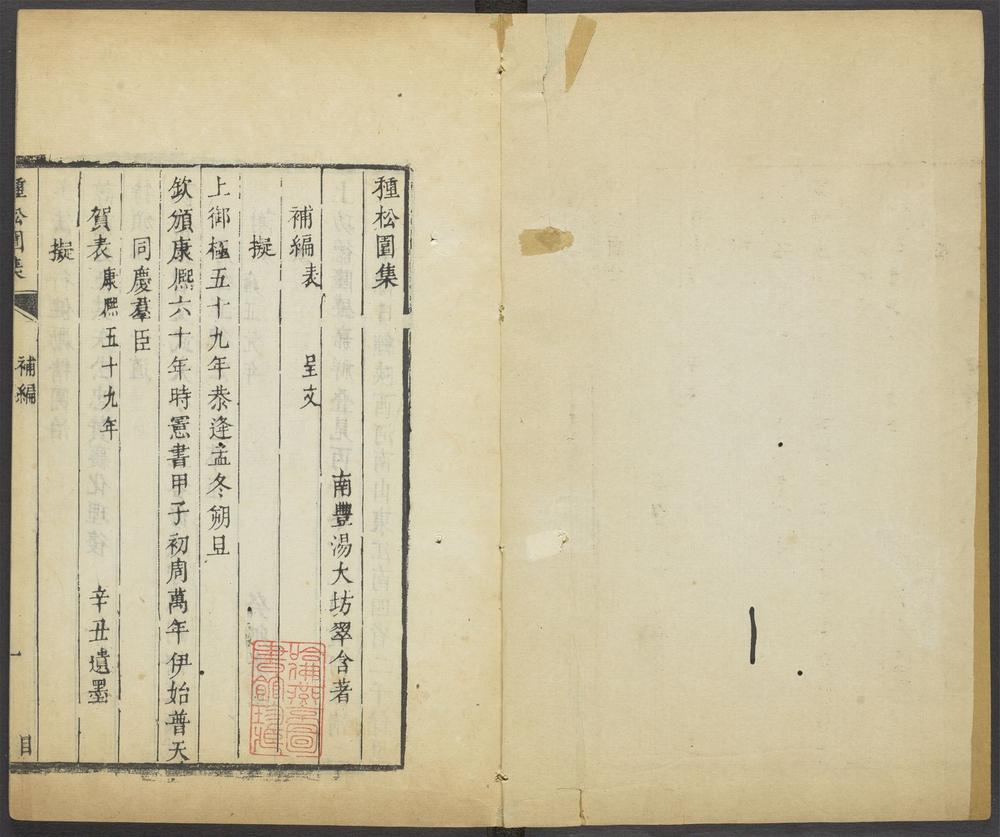 種松園集
南豐湯大坊翠含著
補編 表 呈文
擬
上御極五十九年恭逢孟冬朔旦
欽頒康熈六十年時憲書甲子初周萬年伊始普天
同慶羣臣
賀表 康熈五十九年 辛丑遺墨
擬
種松園集 補編 一 目
哈佛燕京圖書館珍藏